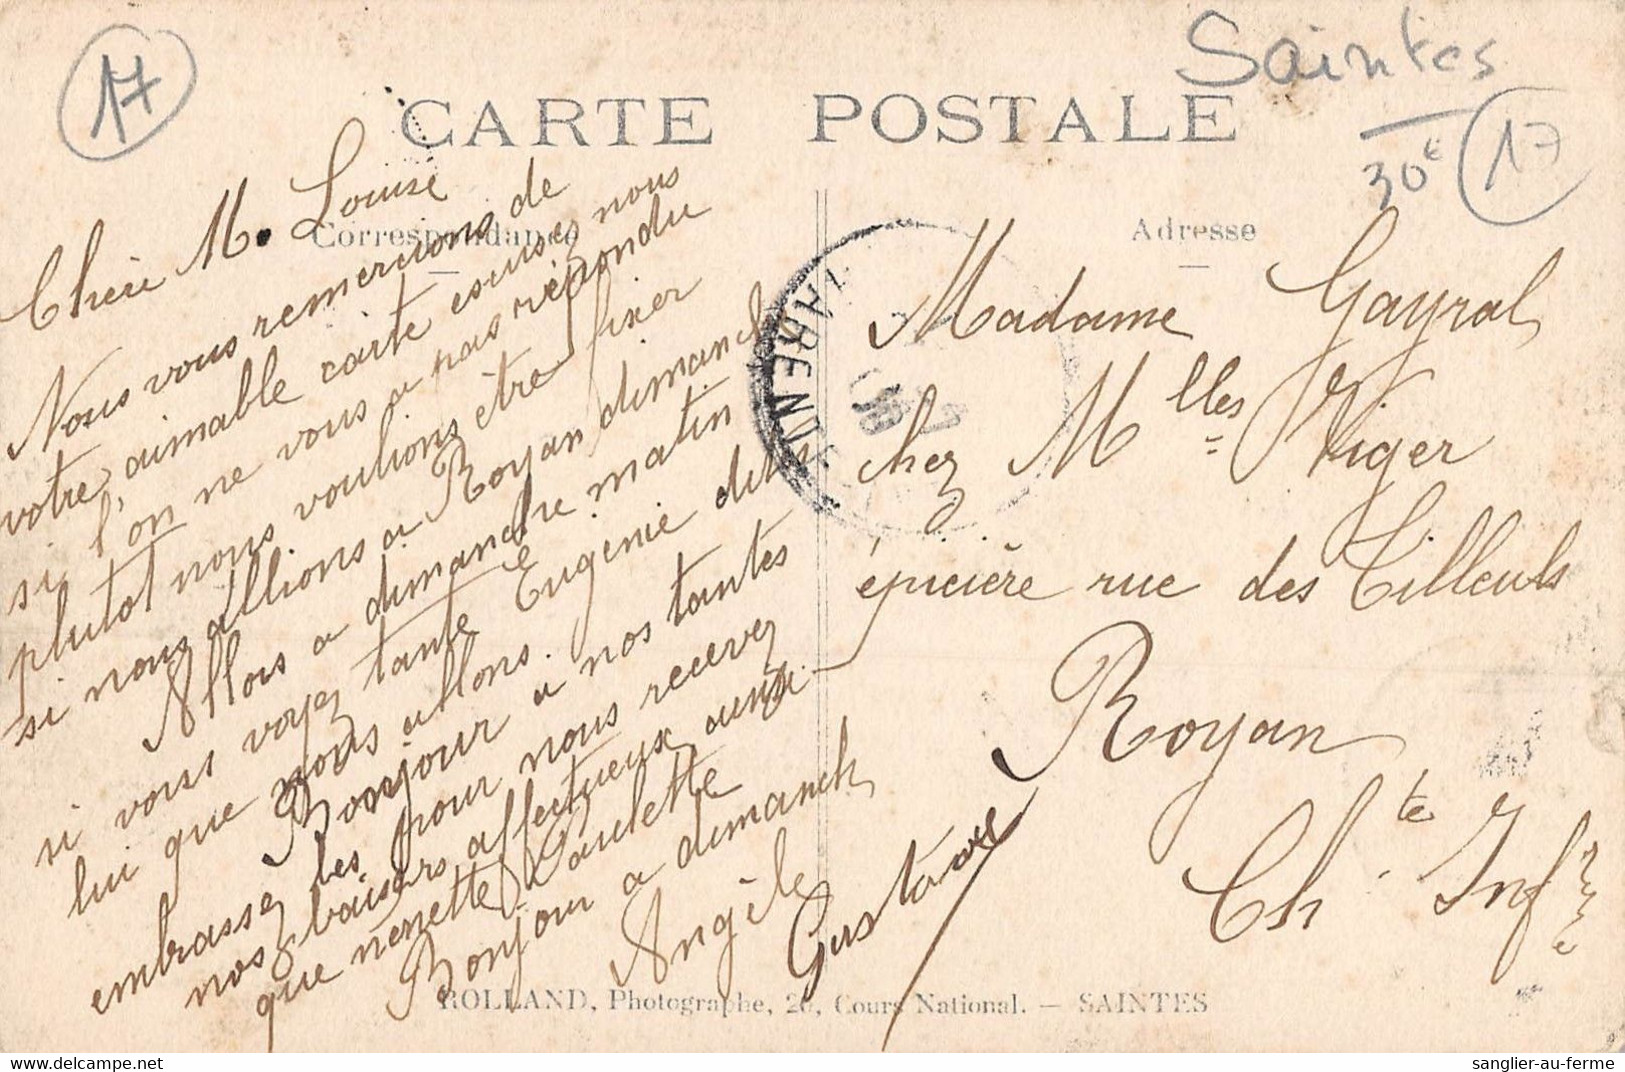 17
Saintes
30€
17
CARTE POSTALE
Correspondance
Adresse
Chère M. Louise
Nous vous remercions de
votre aimable carte excusez nous
si l'on ne vous a pas répondu
plutot nous voulions être fixer
si nous allions a Royan dimanche
Allors a dimanche matin
si vous voyez tante Eugénie dites
lui que nous allons.
Bonjour a nos tantes
embrassez les pour nous recevez
nos baisers affectueux ainsi
que nenette Paulette
Bonjour a dimanche
Angèle
Gustave
Madame Gayral
chez Mlles Viger
épicière rue des Tilleuls
Royan
Chte Infre
CHARENTE
ROLLAND, Photographe, 26, Cours National. — SAINTES
delcampe.net
sanglier-au-ferme